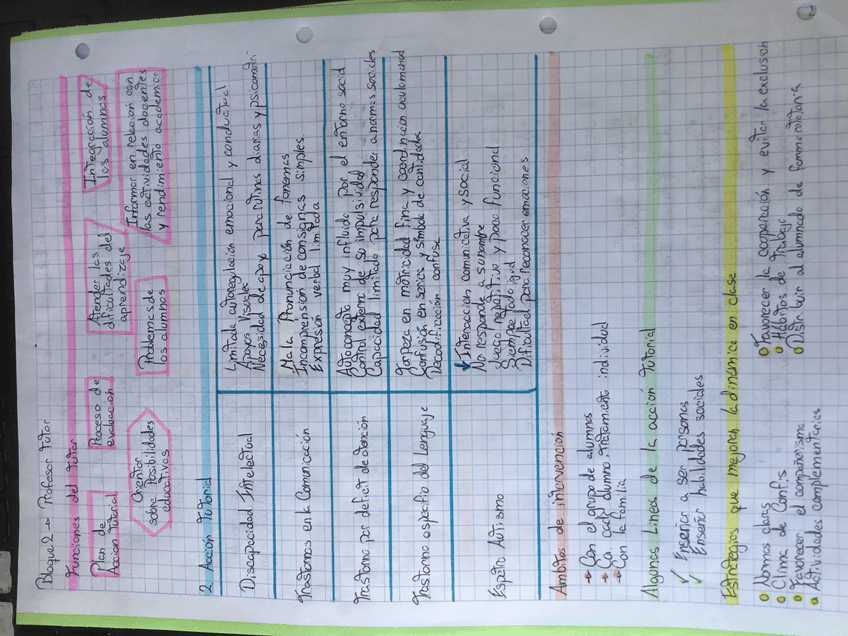 Bloque 2 → Profesor Tutor
Funciones del Tutor
Plan de
Acción Tutorial
Proceso de
evaluación
Atender las
dificultades del
aprendizaje
Integración de
los alumnos
Orientar
sobre Posibilidades
educativas
Problemas de
los alumnos
Informar en relación con
las actividades docentes
y rendimiento académico
2. Acción Tutorial
Discapacidad Intelectual
Limitada autorregulación emocional y conductual
Apoyos visuales
Necesidad de apoyo para rutinas diarias y psicomotri
Trastornos en la Comunicación
Mala Pronunciación de fonemas
Incomprensión de consignas simples
Expresión verbal limitada
Trastorno por deficit de atención
Autoconcepto muy influido por el entorno social
Control externo de su impulsividad
Capacidad limitada para responder a normas sociales
Trastorno especifico del Lenguaje
Torpeza en motricidad fina y coordinación oculomanual
Confusión en series y símbolo de cantidades
Decodificación confusa
Espetro Autismo
Interacción comunicativa y social
No responde a su nombre
Juego repetitivo y poco funcional
Siempre todo igual
Dificultad para reconocer emociones
Ambitos de intervención
→ Con el grupo de alumnos
→ Ca cada alumno tratamiento individual
→ Con la familia
Algunas Líneas de la acción Tutorial
✓ Enseñar a ser personas
✓ Enseñar habilidades sociales
Estrategias que mejoren la dinámica en clase
Normas claras
Clima de Confis
Favorecer el compañerismo
Actividades complementarias
Favorecer la cooperación y evitar la exclusión
Hábitos de Trabajo
Distribuir al alumnado de forma rotatoria